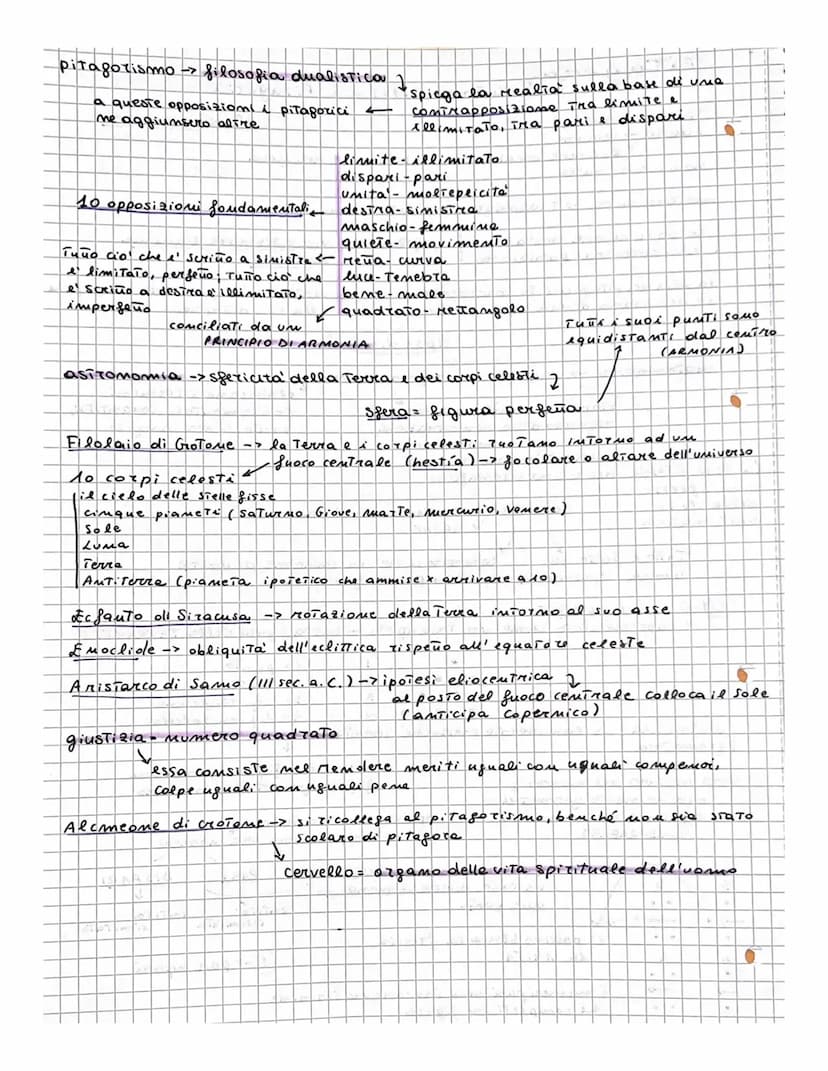 pitagorismo -> filosofia dualistica
spiega la realtà sulla base di una
contrapposizione tra limite e
illimitato, tra pari e dispari
a queste opposizioni i pitagorici
ne aggiunsero altre
10 opposizioni fondamentali
limite - illimitato
dispari - pari
unita' - molteplicita'
destra - sinistra
maschio - femmina
quiete - movimento
retta - curva
luce - tenebra
bene - male
quadrato - rettangolo
Tutto cio' che e' scritto a sinistra
e' limitato, perfetto; tutto cio' che
e' scritto a destra e' illimitato,
imperfetto
conciliati da un
PRINCIPIO DI ARMONIA
Tutti i suoi punti sono
equidistanti dal centro
(ARMONIA)
astronomia -> sfericita' della Terra e dei corpi celesti
sfera = figura perfetta
Filolaio di Crotone -> la Terra e i corpi celesti ruotano intorno ad un
fuoco centrale (hestía) -> focolare o altare dell'universo
10 corpi celesti
il cielo delle stelle fisse
cinque pianeti (Saturno, Giove, Marte, Mercurio, Venere)
Sole
Luna
Terra
Antiterra (pianeta ipotetico che ammise x arrivare a 10)
Ecfanto di Siracusa -> rotazione della Terra intorno al suo asse
Enoclide -> obliquita' dell'eclittica rispetto all'equatore celeste
Aristarco di Samo (III sec. a.C.) -> ipotesi eliocentrica
al posto del fuoco centrale colloca il Sole
(anticipa Copernico)
giustizia = numero quadrato
essa consiste nel rendere meriti uguali con uguali compensi,
colpe uguali con uguali pene
Alcmeone di Crotone -> si ricollega al pitagorismo, benché non sia stato
scolaro di pitagora
cervello = organo della vita spirituale dell'uomo